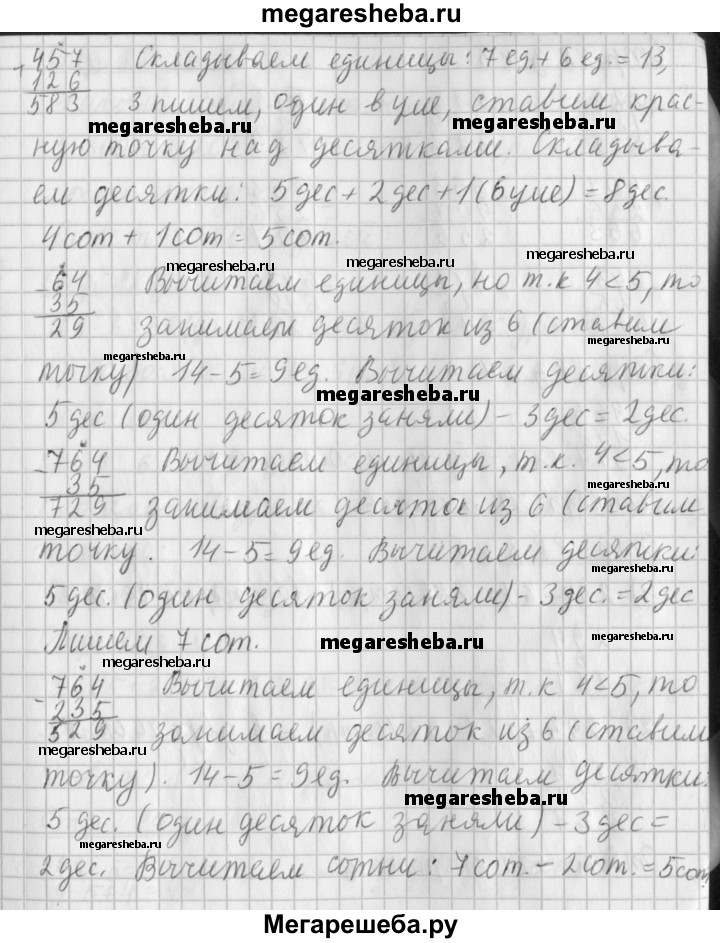 megaresheba.ru
+457 Складываем единицы: 7 ед. + 6 ед. = 13,
126
583 3 пишем, один в уме, ставим крас-
megaresheba.ru megaresheba.ru
ную точку над десятками. Складыва-
ем десятки: 5 дес + 2 дес + 1 (в уме) = 8 дес.
4 сот + 1 сот = 5 сот.
megaresheba.ru megaresheba.ru
-64 Вычитаем единицы, но т.к 4 < 5, то
35
29 занимаем десяток из 6 (ставим
megaresheba.ru megaresheba.ru
точку) 14 - 5 = 9 ед. Вычитаем десятки:
megaresheba.ru
5 дес (один десяток заняли) - 3 дес = 2 дес.
-764 Вычитаем единицы, т.к. 4 < 5, то
35 megaresheba.ru
729 занимаем десяток из 6 (ставим
megaresheba.ru
точку. 14 - 5 = 9 ед. Вычитаем десятки:
megaresheba.ru
5 дес. (один десяток заняли) - 3 дес. = 2 дес
Пишем 7 сот. megaresheba.ru
megaresheba.ru
-764 Вычитаем единицы, т.к 4 < 5, то
235 megaresheba.ru
529 занимаем десяток из 6 (ставим
megaresheba.ru
точку). 14 - 5 = 9 ед. Вычитаем десятки:
megaresheba.ru
5 дес. (один десяток заняли) - 3 дес =
megaresheba.ru
2 дес. Вычитаем сотни: 7 сот. - 2 сот. = 5 сот.
Мегарешеба.ру